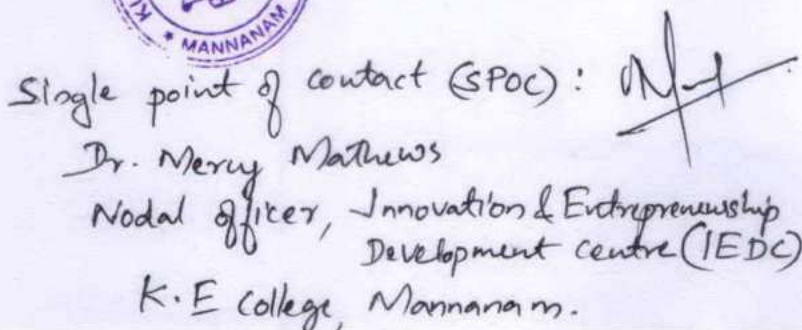 MANNANAM
Single point of contact (SPOC) :
Dr. Mercy Mathews
Nodal officer, Innovation & Entrepreneurship
Development centre (IEDC)
K.E College, Mannanam.